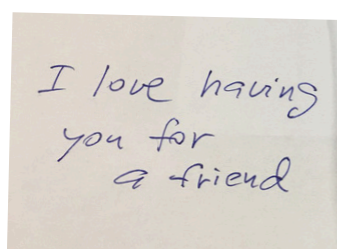 I love having
you for
a friend